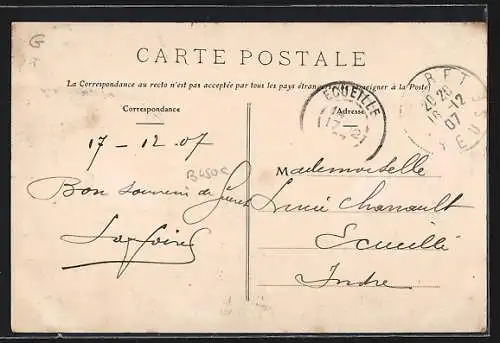 G
CARTE POSTALE
La Correspondance au recto n'est pas acceptée par tous les pays étrangers (Se renseigner à la Poste)
Correspondance
Adresse
ECUEILLÉ
17 -12
RET
20 20
16-12
07
EUSE
17 - 12 07
B450c
Mademoiselle
Bon souvenir de Guéret
Lucie
Ecueillé
Indre